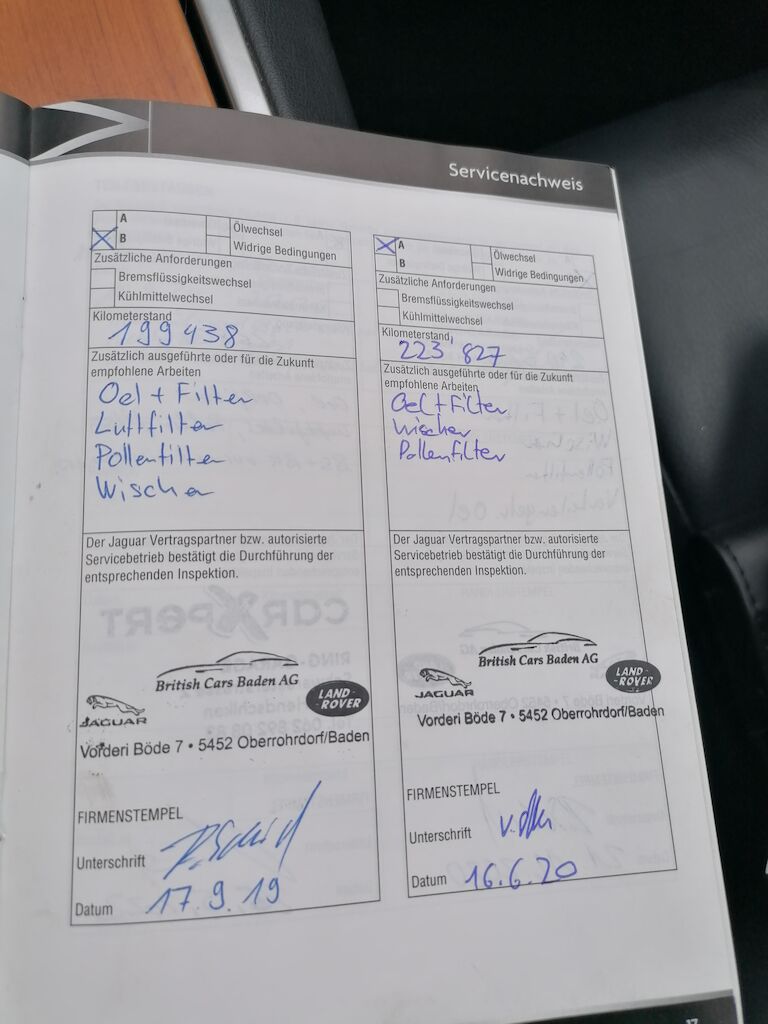 Servicenachweis
A
B
Ölwechsel
Widrige Bedingungen
Zusätzliche Anforderungen
Bremsflüssigkeitswechsel
Kühlmittelwechsel
Kilometerstand
199438
Zusätzlich ausgeführte oder für die Zukunft
empfohlene Arbeiten
Oel + Filter
Luftfilter
Pollenfilter
Wischer
Der Jaguar Vertragspartner bzw. autorisierte
Servicebetrieb bestätigt die Durchführung der
entsprechenden Inspektion.
British Cars Baden AG
JAGUAR
LAND
-ROVER
Vorderi Böde 7 • 5452 Oberrohrdorf/Baden
FIRMENSTEMPEL
Unterschrift
Datum 17.9.19
A
B
Ölwechsel
Widrige Bedingungen
Zusätzliche Anforderungen
Bremsflüssigkeitswechsel
Kühlmittelwechsel
Kilometerstand
223 827
Zusätzlich ausgeführte oder für die Zukunft
empfohlene Arbeiten
Oel + Filter
Wischer
Pollenfilter
Der Jaguar Vertragspartner bzw. autorisierte
Servicebetrieb bestätigt die Durchführung der
entsprechenden Inspektion.
British Cars Baden AG
JAGUAR
LAND
-ROVER
Vorderi Böde 7 • 5452 Oberrohrdorf/Baden
FIRMENSTEMPEL
Unterschrift
Datum 16.6.20